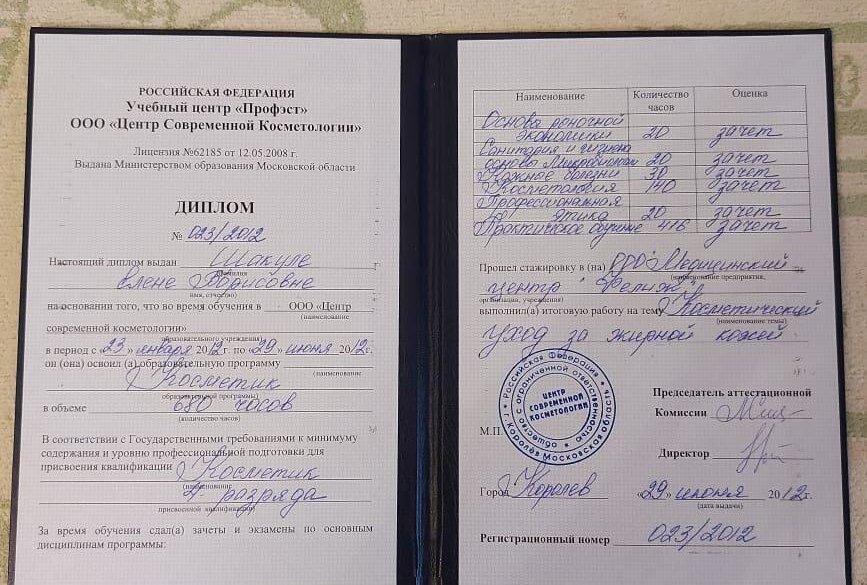 РОССИЙСКАЯ ФЕДЕРАЦИЯ
Учебный центр «Профэст»
ООО «Центр Современной Косметологии»
Лицензия №62185 от 12.05.2008 г.
Выдана Министерством образования Московской области
ДИПЛОМ
№ 023/2012
Настоящий диплом выдан Шакуле
фамилия
Елене Борисовне
имя, отчество)
на основании того, что во время обучения в ООО «Центр
(наименование
современной косметологии»
образовательного учреждения)
в период с «23» января 2012г. по «29» июня 2012г.
он (она) освоил (а) образовательную программу
(наименование
Косметик
образовательной программы)
в объеме 680 часов
(количество часов)
В соответствии с Государственными требованиями к минимуму
содержания и уровню профессиональной подготовки для
присвоения квалификации Косметик
(наименование
4 разряда
присвоенной квалификации)
За время обучения сдал(а) зачеты и экзамены по основным
дисциплинам программы:
Наименование Количество часов Оценка
Основа рыночной
экономики 20 зачет
Санитария и гигиена
основы Микробиологии 20 зачет
Кожные болезни 30 зачет
Косметология 140 зачет
Профессиональная
этика 20 зачет
Практическое обучение 416 зачет
Прошел стажировку в (на) ООО «Медицинский
(наименование предприятия,
центр
организации, учреждения)
выполнил(а) итоговую работу на тему «Косметический
(наименование темы)
уход за жирной кожей
Российская Федерация
г. Королев Московская область
с ограниченной ответственностью
общество
ЦЕНТР
СОВРЕМЕННОЙ
КОСМЕТОЛОГИИ
М.П.
Председатель аттестационной
Комиссии
Директор
Город Королев «29» июня 2012г.
(дата выдачи)
Регистрационный номер 023/2012